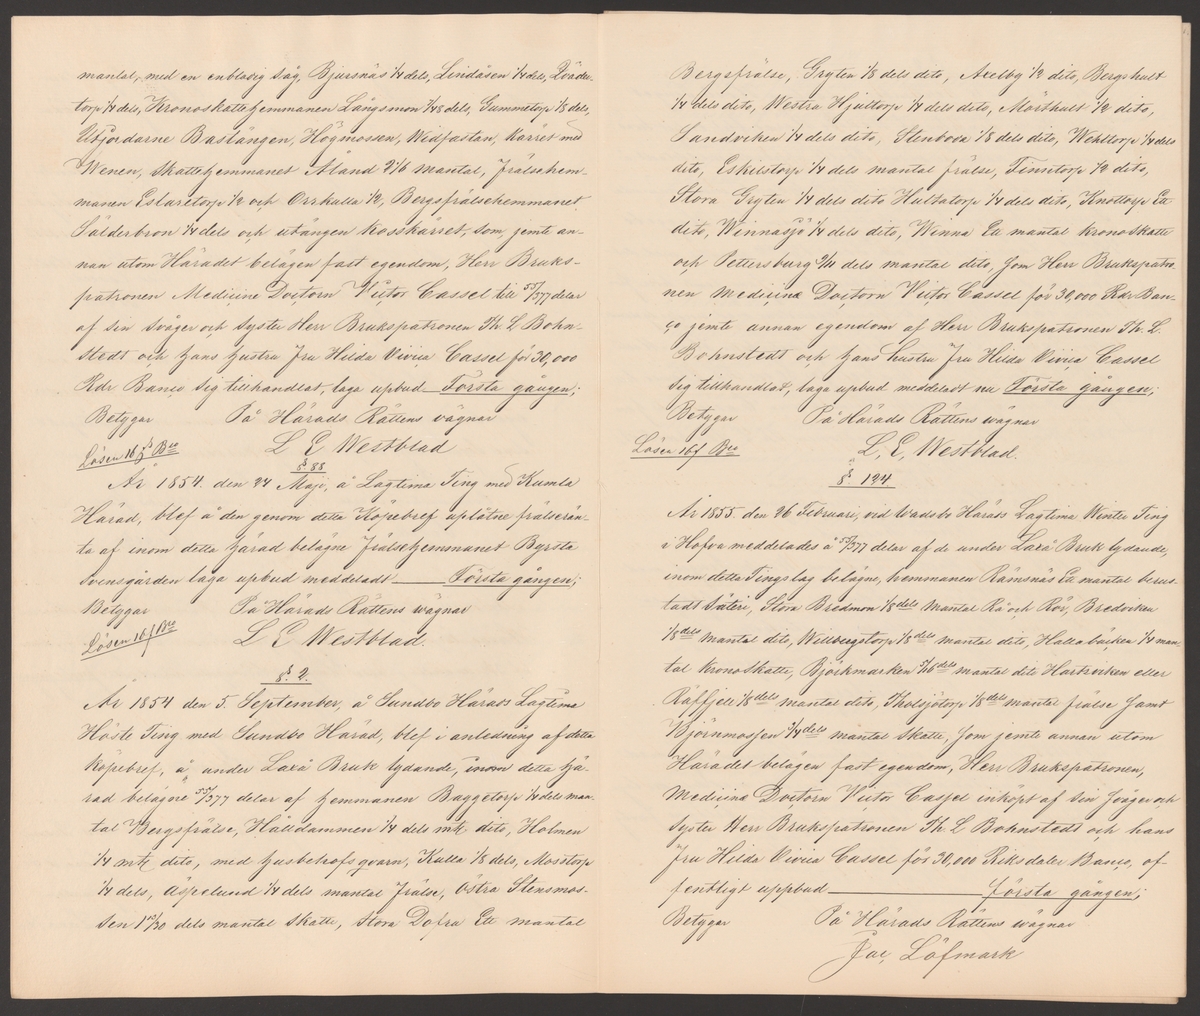 mantal, med en enbladig Såg, Bjursnäs 1/4 dels, Lindåsen 1/4 dels, Qväder-
torp 1/4 dels, Kronoskattehemmanen Långsmon 7/48 dels, Gummetorp 1/8 dels,
Utfjordarne Bastängen, Högmossen, Wedfastan, Kärret med
Wenen, Skattehemmanet Åland 2 1/6 mantal, Frälsehem-
manen Eslaretorp 1/2 och Orrkulla 1/2, Bergsfrälsehemmanet
Sälderbron 1/4 dels och utängen Kosskärret, som jemte an-
nan utom Häradet belägen fast egendom, Herr Bruks-
patronen Medicine Doctorn Victor Cassel till 55/377 delar
af sin Svåger och Syster Herr Brukspatronen Th. L Bohn-
stedt och hans hustru Fru Hilda Vivica Cassel för 30,000
Rdr Banco sig tillhandlat, laga upbud Första gången;
Betygar På Härads Rättens wägnar
Lösen 16 f Bco L E Westblad
§ 88
År 1854. den 24 Maji, å Lagtima Ting med Kumla
Härad, blef å den genom detta Köpebref uplåtne frälserän-
ta af inom detta härad belägne Frälsehemmanet Byrsta
Svensgården laga upbud meddeladt Första gången;
Betygar På Härads Rättens wägnar
Lösen 16 f Bco L E Westblad.
§. 2.
År 1854 den 5. September, å Sundbo Härads Lagtima
Höste Ting med Sundbo Härad, blef i anledning af detta
Köpebref, å, under Laxå Bruk lydande, inom detta hä-
rad belägne 55/377 delar af hemmanen Baggetorp 1/4 dels man-
tal Bergsfrälse, Hålldammen 1/4 dels mtl dito, Holmen
1/4 mtl dito, med husbehofs qvarn, Kulla 1/8 dels, Mosstorp
1/4 dels, Äspelund 1/4 dels mantal Frälse, Östra Stensmos-
sen 1 13/30 dels mantal Skatte, Stora Dofra Ett mantal
Bergsfrälse, Gryten 1/8 dels dito, Axelby 1/2 dito, Bergshult
1/4 dels dito, Westra Hjultorp 1/4 dels dito, Mörthult 1/2 dito,
Sandviken 1/4 dels dito, Stenboda 1/8 dels dito, Wehltorp 1/4 dels
dito, Eskilstorp 1/4 dels mantal frälse, Finntorp 1/2 dito,
Stora Gryten 1/4 dels dito Hultatorp 1/4 dels dito, Knottorp Ett
dito, Winnasjö 1/4 dels dito, Winna Ett mantal Krono Skatte
och Pettersburg 9/11 dels mantal dito, som Herr Brukspatro-
nen Medicinæ Doctorn Victor Cassel för 30,000 Rdr Ban-
co jemte annan egendom af Herr Brukspatronen Th. L.
Bohnstedt och hans hustru Fru Hilda Vivica Cassel
sig tillhandlat, laga upbud meddeladt nu Första gången;
Betygar På Härads Rättens wägnar
Lösen 16 f Bco L, E, Westblad.
§ 124
År 1855. den 26 Februari, vid Wadsbo Härads Lagtima Winter Ting
i Hofva meddelades å 55/377 delar af de under Laxå Bruk lydande,
inom detta Tingslag belägne, hemmanen Rämsnäs Ett mantal berus-
tadt Säteri, Stora Bredmon 1/8 dels Mantal Rå och Rör, Bredviken
1/8 dels mantal dito, Willbergstorp 1/8 dels mantal dito, Hallabäcken 1/4 man-
tal Krono Skatte, Björkmarken 5/16 dels mantal dito Hartsviken eller
Räffjell 1/8 dels mantal dito, Tholsjötorp 1/8 dels mantal frälse samt
Björnmossen 1/4 dels mantal Skatte, som jemte annan utom
Häradet belägen fast egendom, Herr Brukspatronen,
Medicinæ Doctorn Victor Cassel inköpt af sin Svåger och
Syster Herr Brukspatronen Th. L Bohnstedt och hans
Fru Hilda Vivica Cassel för 30,000 Riksdaler Banco, of-
fentligt uppbud första gången;
Betygar På Härads Rättens wägnar
Jac, Löfmark